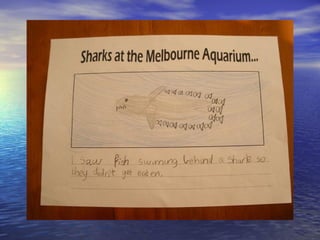 Sharks at the Melbourne Aquarium...
I saw fish swimming behind a shark so
they didn't get eaten.